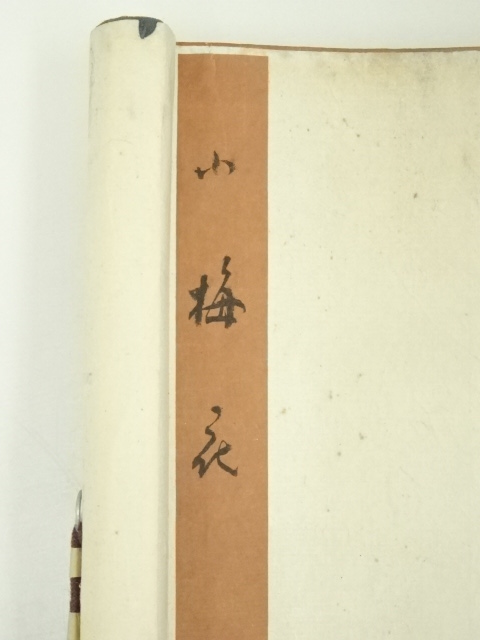 小梅花